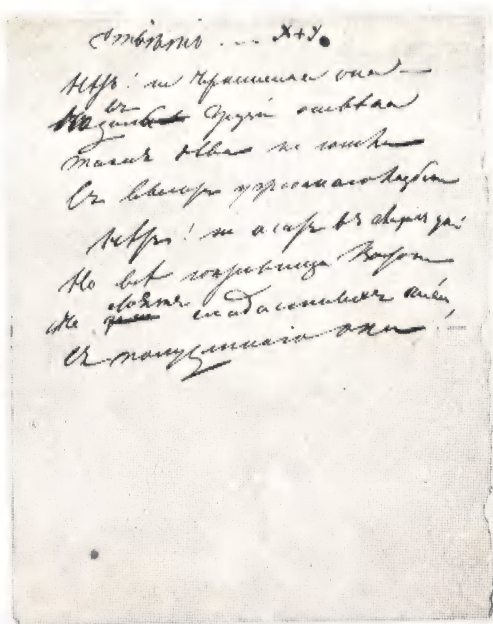 Отвѣтъ .... X+Y.
Нѣтъ! не Черкешенка она —
Но въ Грузіи отвѣка
такая дѣва не сошла
Съ высотъ угрюмаго Казбека
Нѣтъ! не агатъ въ глазахъ у ней
Но всѣ сокровища Востока
Не стоятъ сладостныхъ лучей
Ея полуденнаго ока! —